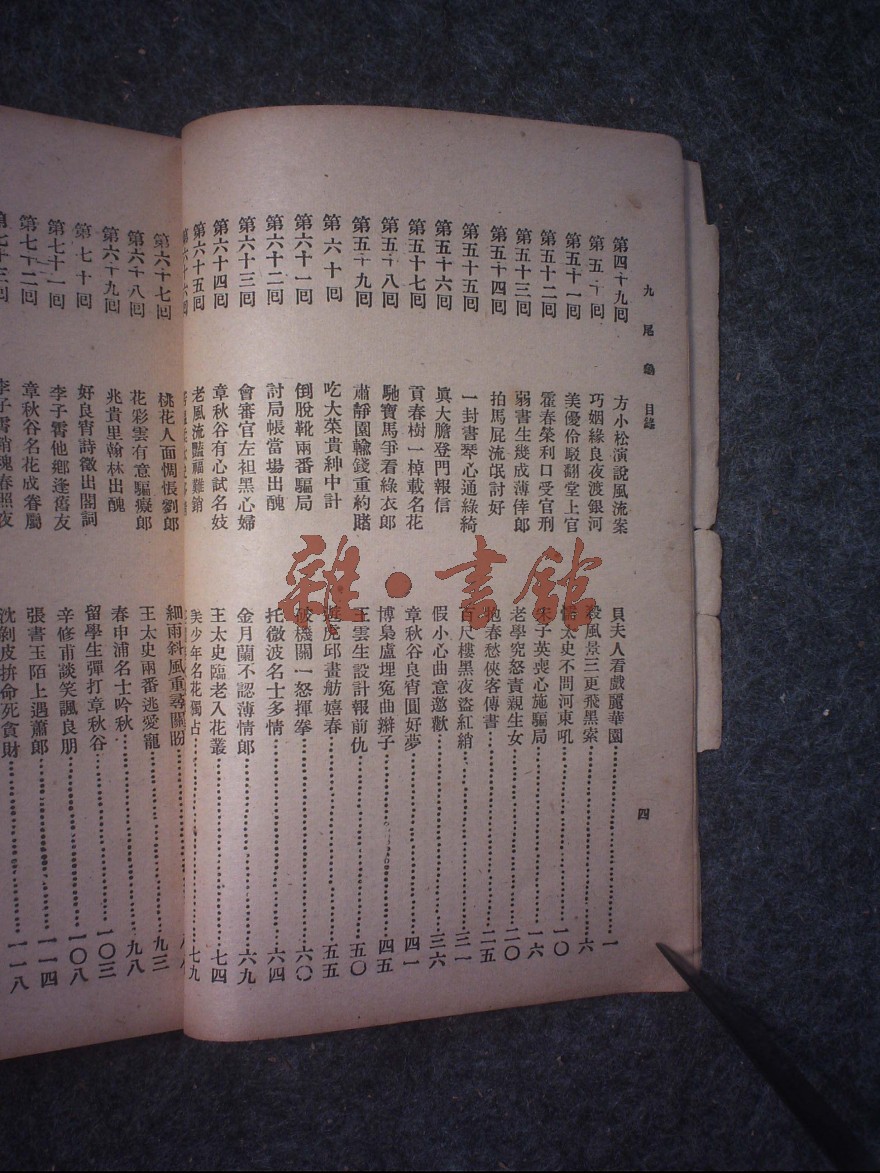 九尾龜 目錄 四
第四十九回 方小松演說風流案 貝夫人看戲麗華園 一
第五十回 巧姻緣良夜渡銀河 殺風景三更飛黑索 六
第五十一回 美優伶駁翻堂上官 太史不問河東吼 一〇
第五十二回 霍春榮利口受官刑 宋子英喪心施騙局 一六
第五十三回 弱書生幾成薄倖郎 老學究怒責親生女 二〇
第五十四回 拍馬屁流氓討好 抱春愁俠客傳書 二五
第五十五回 一封書琴心通綠綺 百尺樓黑夜盜紅綃 三一
第五十六回 眞大膽登門報信 假小心曲意邀歡 三六
第五十七回 貢春樹一棹載名花 章秋谷良宵圓好夢 四一
第五十八回 馳寶馬爭看綠衣郎 博梟盧埋寃曲辮子 四五
第五十九回 蕭靜園輸錢重約賭 王雲生設計報前仇 五〇
第六十回 吃大菜貴紳中計 遊虎邱畫舫嬉春 五五
第六十一回 倒脫靴兩番騙局 破機關一怒揮拳 六〇
第六十二回 討局帳當場出醜 托微波名士多情 六四
第六十三回 會審官左袒黑心婦 金月蘭不認薄情郎 六九
第六十四回 章秋谷有心試名妓 王太史臨老入花叢 七四
第六十五回 老風流豔福難銷 美少年名花獨占 七九
第六十六回
第六十七回 桃花人面惆悵劉郎 細雨斜風重尋關盼 九三
第六十八回 花彩雲有意騙癡郎 王太史兩番逃愛寵 九八
第六十九回 兆貴里翰林出醜 春申浦名士吟秋 一〇三
第七十回 好良宵詩徵出閣詞 留學生彈打章秋谷 一〇八
第七十一回 李子霄他鄉逢舊友 辛修甫談笑諷良朋 一一四
第七十二回 章秋谷名花成眷屬 張書玉陌上遇蕭郎 一一八
第七十三回 李子霄銷魂春照夜 沈剝皮拚命死貪財
雜·書館